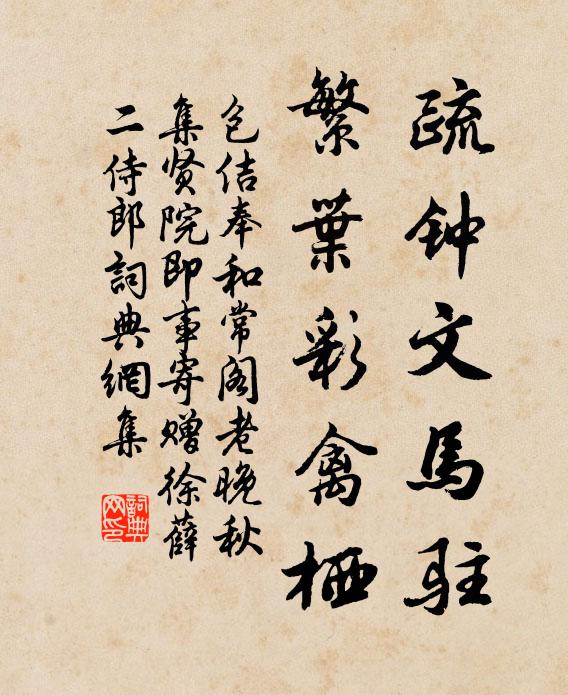 疏钟文馬駐
繁葉彩禽栖
包佶奉和常阁老晚秋
集贤院即事寄赠徐薛
二侍郎詞典網集
詞典
网印